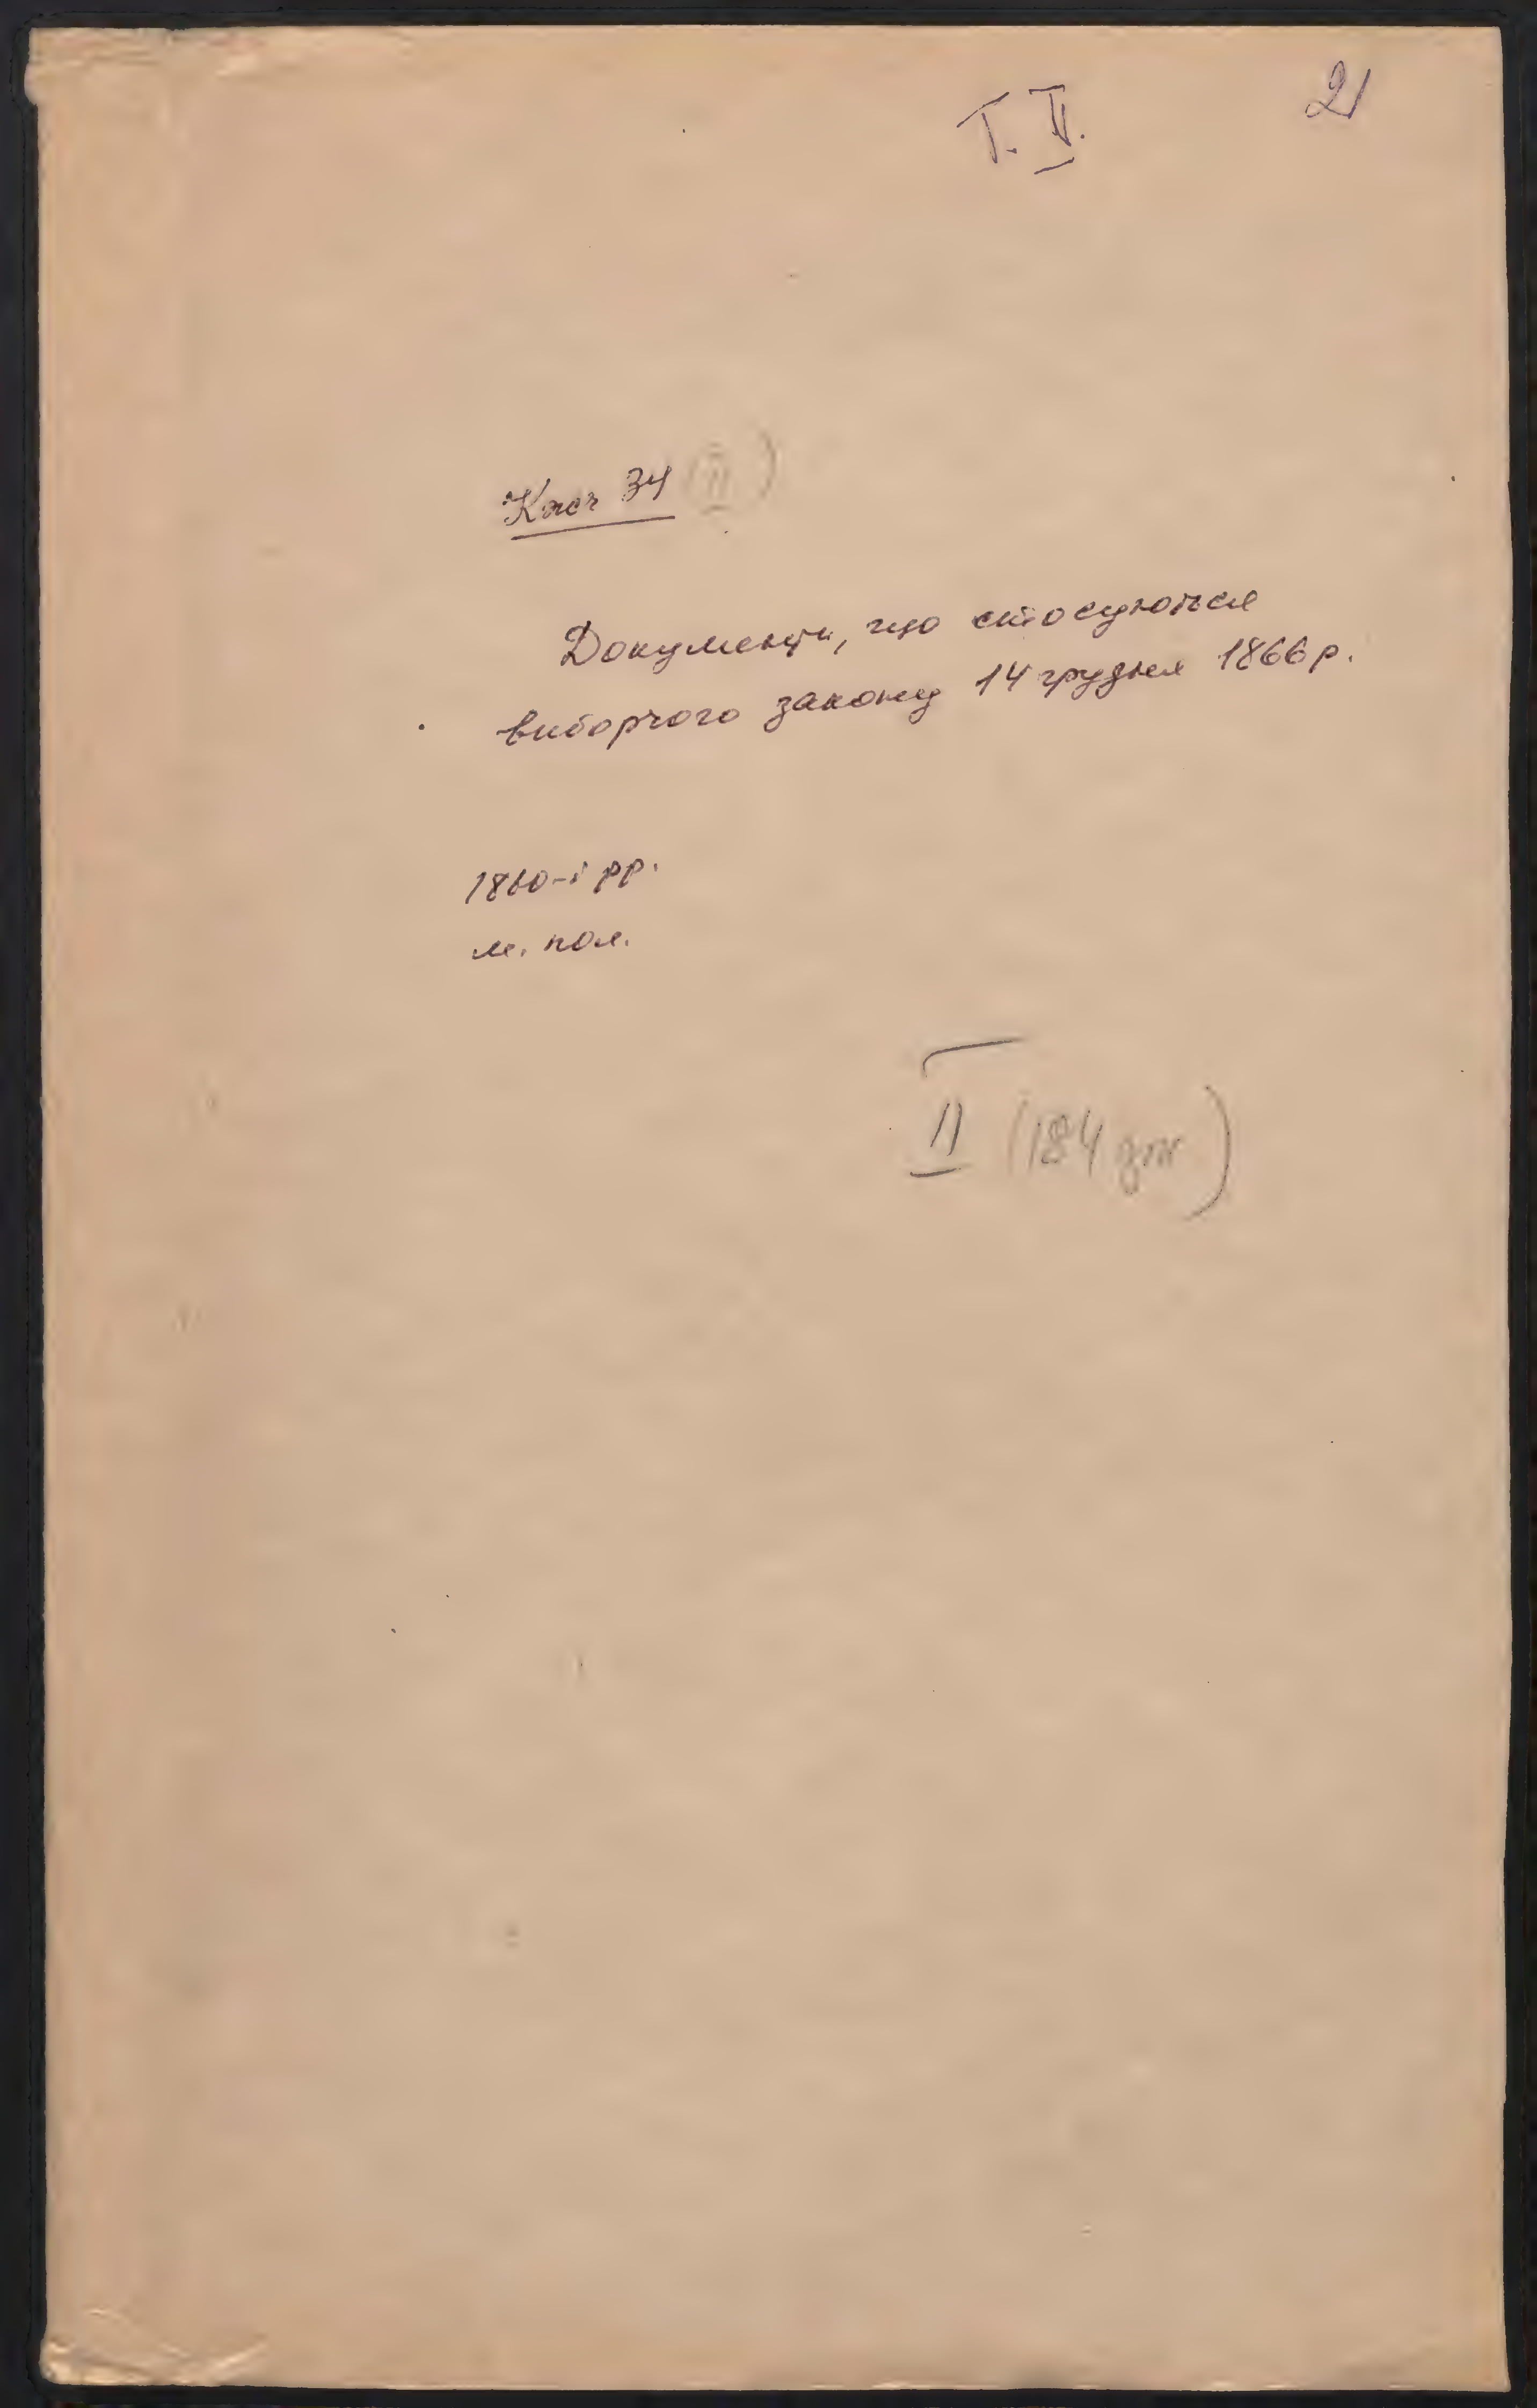 Т. II.
2
Кжсч 34 (II)
Документи, що стосуються
виборчого закону 14 грудня 1866 р.
1860-і рр.
м. пол.
II (184 док)